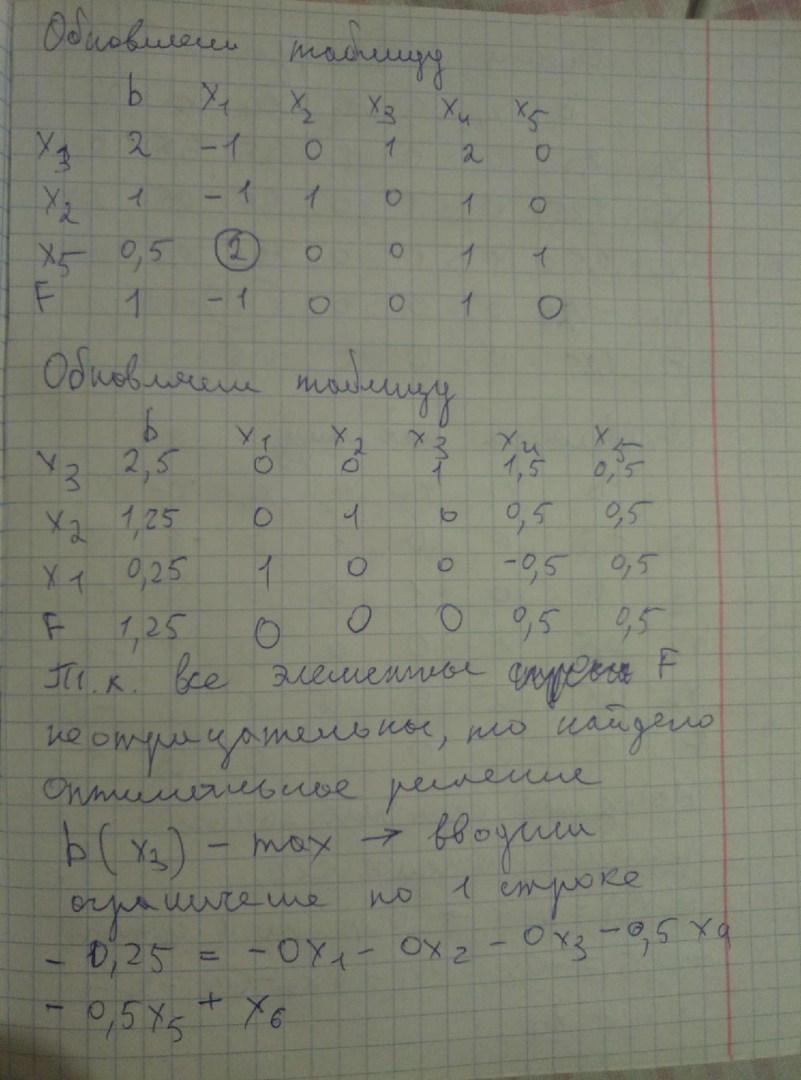 Обновляем таблицу
b x₁ x₂ x₃ x₄ x₅
x₃ 2 -1 0 1 2 0
x₂ 1 -1 1 0 1 0
x₅ 0,5 2 0 0 1 1
F 1 -1 0 0 1 0
Обновляем таблицу
b x₁ x₂ x₃ x₄ x₅
x₃ 2,5 0 0 1 1,5 0,5
x₂ 1,25 0 1 0 0,5 0,5
x1 0,25 1 0 0 -0,5 0,5
F 1,25 0 0 0 0,5 0,5
Т.к. все элементы строки F
неотрицательны, то найдено
оптимальное решение
b(x₃) - max → вводим
ограничение по 1 строке
- 0,25 = -0x₁ - 0x₂ - 0x₃ - 0,5 x₄
- 0,5x₅ + x₆